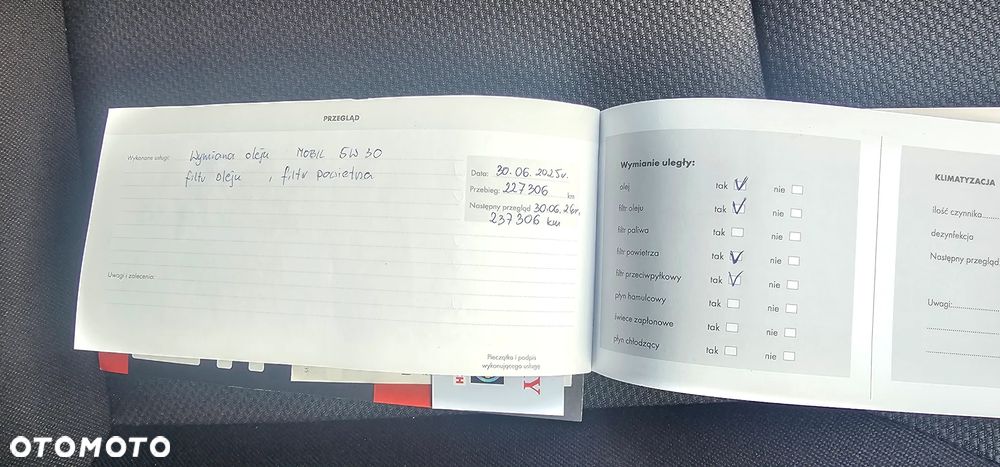 PRZEGLĄD
Wykonane usługi: Wymiana oleju MOBIL 5W30
filtr oleju , filtr powietrza
Data: 30.06.2025r.
Przebieg: 227306 km
Następny przegląd 30.06.26r,
237306 km
Uwagi i zalecenia:
Pieczątka i podpis
wykonującego usługę
Wymianie uległy:
olej tak nie
filtr oleju tak nie
filtr paliwa tak nie
filtr powietrza tak nie
filtr przeciwpyłkowy tak nie
płyn hamulcowy tak nie
świece zapłonowe tak nie
płyn chłodzący tak nie
KLIMATYZACJA
ilość czynnika
dezynfekcja
Następny przegląd
Uwagi:
OTOMOTO